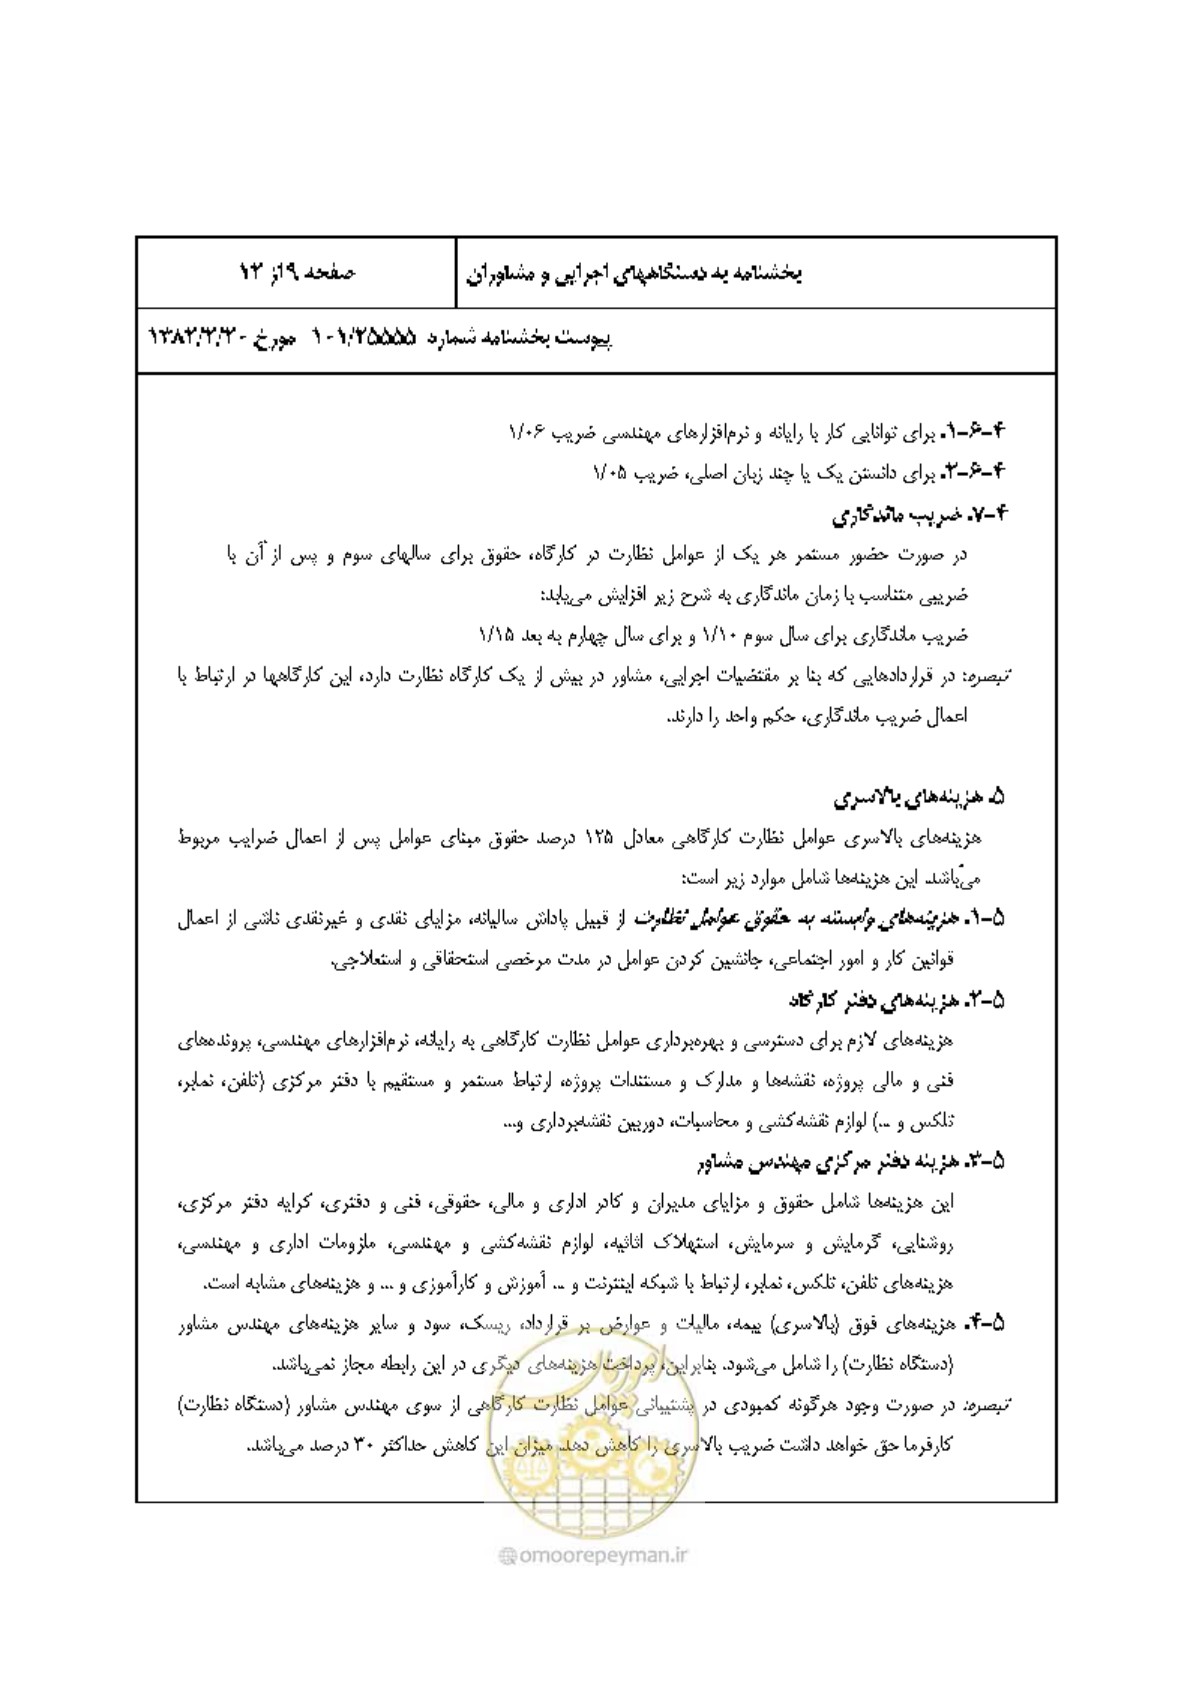 بخشنامه به دستگاههای اجرایی و مشاوران
صفحه ۹ از ۱۲
پیوست بخشنامه شماره ۱۰۱/۲۵۵۵۵ مورخ ۱۳۸۲/۲/۲۰
۴-۶-۱. برای توانایی کار با رایانه و نرم‌افزارهای مهندسی ضریب ۱/۰۶
۴-۶-۲. برای دانستن یک یا چند زبان اصلی، ضریب ۱/۰۵
۴-۷. ضریب ماندگاری
در صورت حضور مستمر هر یک از عوامل نظارت در کارگاه، حقوق برای سالهای سوم و پس از آن با
ضریبی متناسب با زمان ماندگاری به شرح زیر افزایش می‌یابد:
ضریب ماندگاری برای سال سوم ۱/۱۰ و برای سال چهارم به بعد ۱/۱۵
تبصره: در قراردادهایی که بنا بر مقتضیات اجرایی، مشاور در بیش از یک کارگاه نظارت دارد، این کارگاهها در ارتباط با
اعمال ضریب ماندگاری، حکم واحد را دارند.
۵. هزینه‌های بالاسری
هزینه‌های بالاسری عوامل نظارت کارگاهی معادل ۱۲۵ درصد حقوق مبنای عوامل پس از اعمال ضرایب مربوط
می‌باشد. این هزینه‌ها شامل موارد زیر است:
۵-۱. هزینه‌های وابسته به حقوق عوامل نظارت از قبیل پاداش سالیانه، مزایای نقدی و غیرنقدی ناشی از اعمال
قوانین کار و امور اجتماعی، جانشین کردن عوامل در مدت مرخصی استحقاقی و استعلاجی.
۵-۲. هزینه‌های دفتر کارگاه
هزینه‌های لازم برای دسترسی و بهره‌برداری عوامل نظارت کارگاهی به رایانه، نرم‌افزارهای مهندسی، پرونده‌های
فنی و مالی پروژه، نقشه‌ها و مدارک و مستندات پروژه، ارتباط مستمر و مستقیم با دفتر مرکزی (تلفن، نمابر،
تلکس و ...) لوازم نقشه‌کشی و محاسبات، دوربین نقشه‌برداری و...
۵-۳. هزینه دفتر مرکزی مهندس مشاور
این هزینه‌ها شامل حقوق و مزایای مدیران و کادر اداری و مالی، حقوقی، فنی و دفتری، کرایه دفتر مرکزی،
روشنایی، گرمایش و سرمایش، استهلاک اثاثیه، لوازم نقشه‌کشی و مهندسی، ملزومات اداری و مهندسی،
هزینه‌های تلفن، تلکس، نمابر، ارتباط با شبکه اینترنت و ... آموزش و کارآموزی و ... و هزینه‌های مشابه است.
۵-۴. هزینه‌های فوق (بالاسری) بیمه، مالیات و عوارض بر قرارداد، ریسک، سود و سایر هزینه‌های مهندس مشاور
(دستگاه نظارت) را شامل می‌شود. بنابراین، پرداخت هزینه‌های دیگری در این رابطه مجاز نمی‌باشد.
تبصره: در صورت وجود هرگونه کمبودی در پشتیبانی عوامل نظارت کارگاهی از سوی مهندس مشاور (دستگاه نظارت)
کارفرما حق خواهد داشت ضریب بالاسری را کاهش دهد. میزان این کاهش حداکثر ۳۰ درصد می‌باشد.
امور پیمان
@omoorepeyman.ir